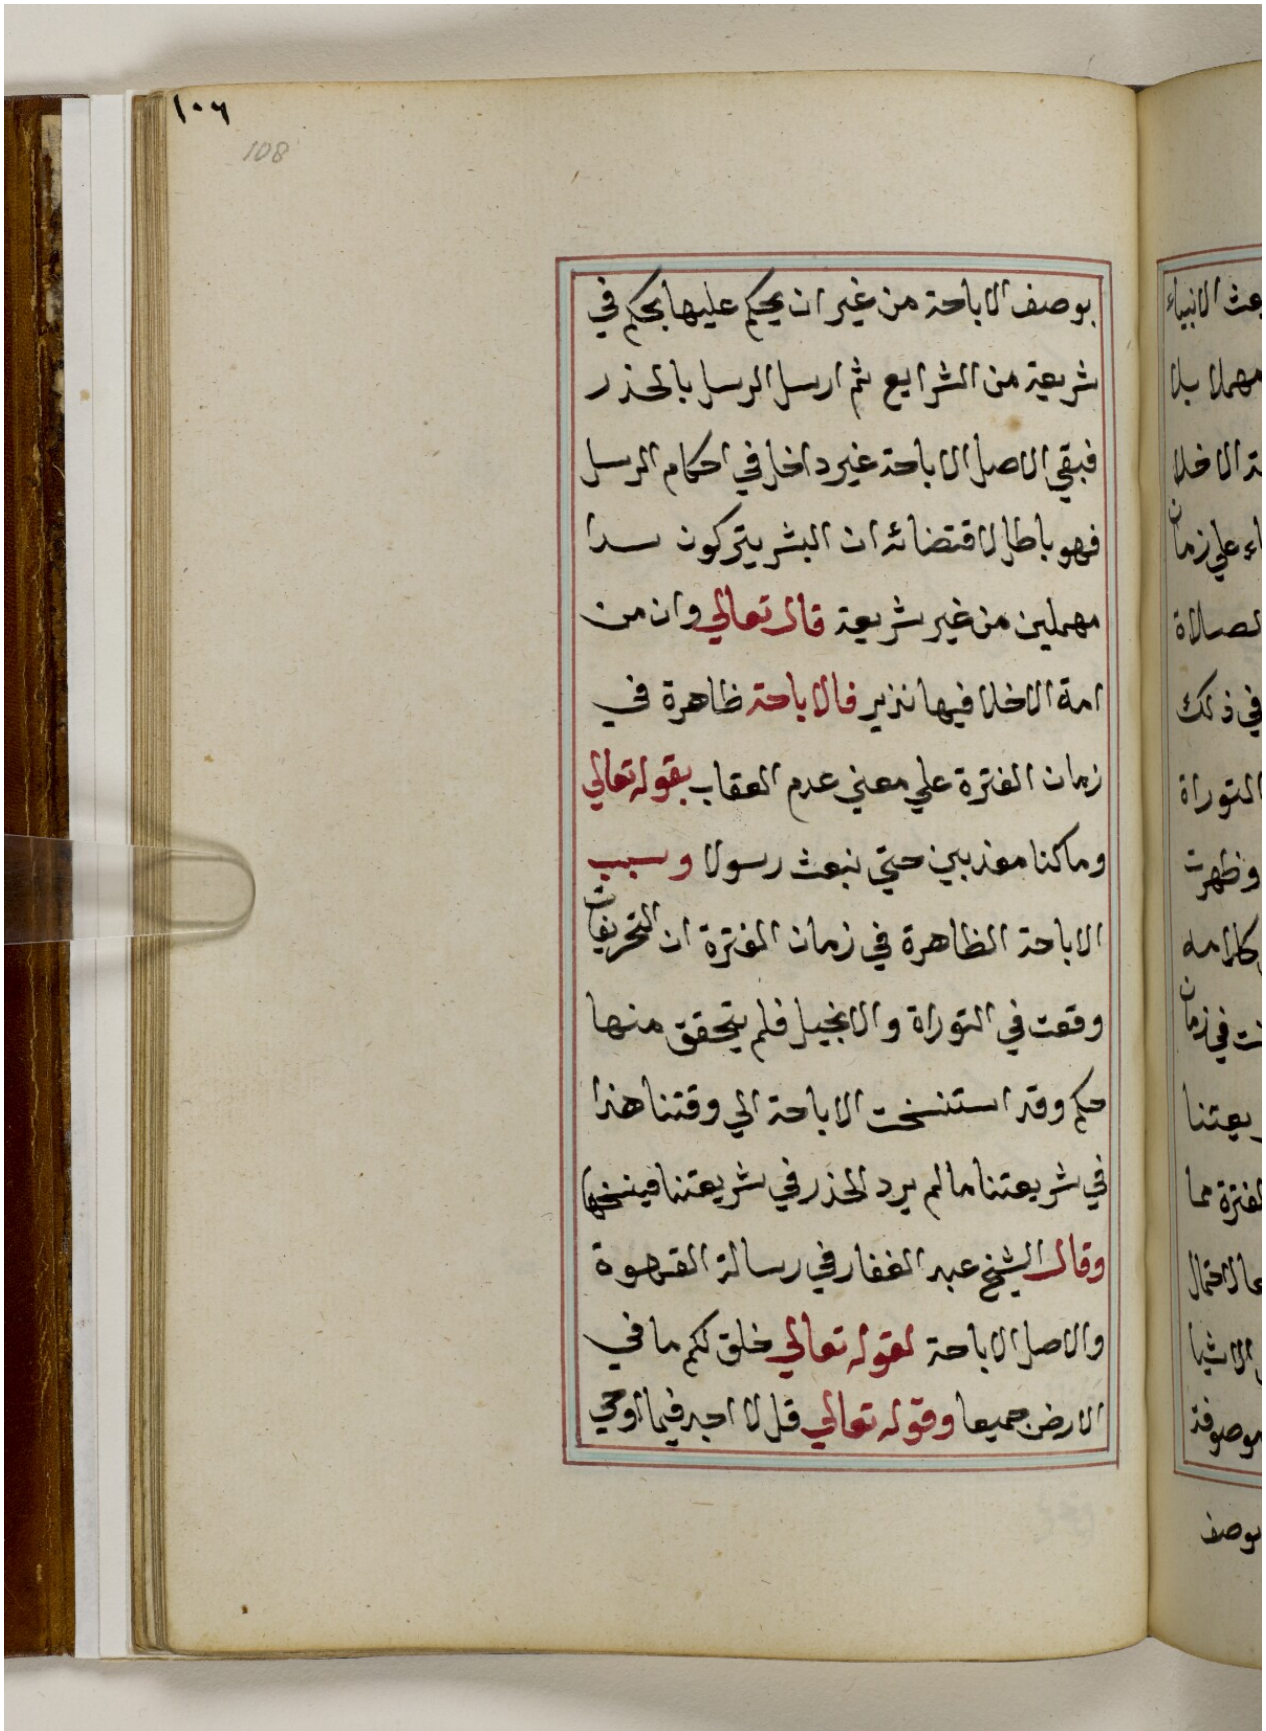 ١٠٦
108
بوصف الاباحة من غير ان يحكم عليها بحكم في
شريعة من الشرايع ثم ارسل الرسل بالحذر
فبقي الاصل الاباحة غير داخل في احكام الرسل
فهو باطل لاقتضائه ان البشر يتركون سدا
مهملين من غير شريعة قال تعالي وان من
امة الاخلا فيها نذير فالاباحة ظاهرة في
زمان الفترة علي معني عدم العقاب بقوله تعالي
وماكنا معذبين حتي نبعث رسولا وسبب
الاباحة الظاهرة في زمان الفترة ان التحريفات
وقعت في التوراة والانجيل فلم يتحقق منها
حكم وقد استنسخت الاباحة الي وقتنا هذا
في شريعتنا مالم يرد الحذر في شريعتنا فينسخها
وقال الشيخ عبد الغفار في رسالة القهوة
والاصل الاباحة لقوله تعالي خلق لكم ما في
الارض جميعا وقوله تعالي قل لا اجد فيما اوحي
الانبياء
مهملا بلا
الاخلا
علي زمان
الصلاة
في ذلك
التوراة
وظهرت
كلامه
في زمان
الفترة مما
الاشيا
موصوفة
بوصف